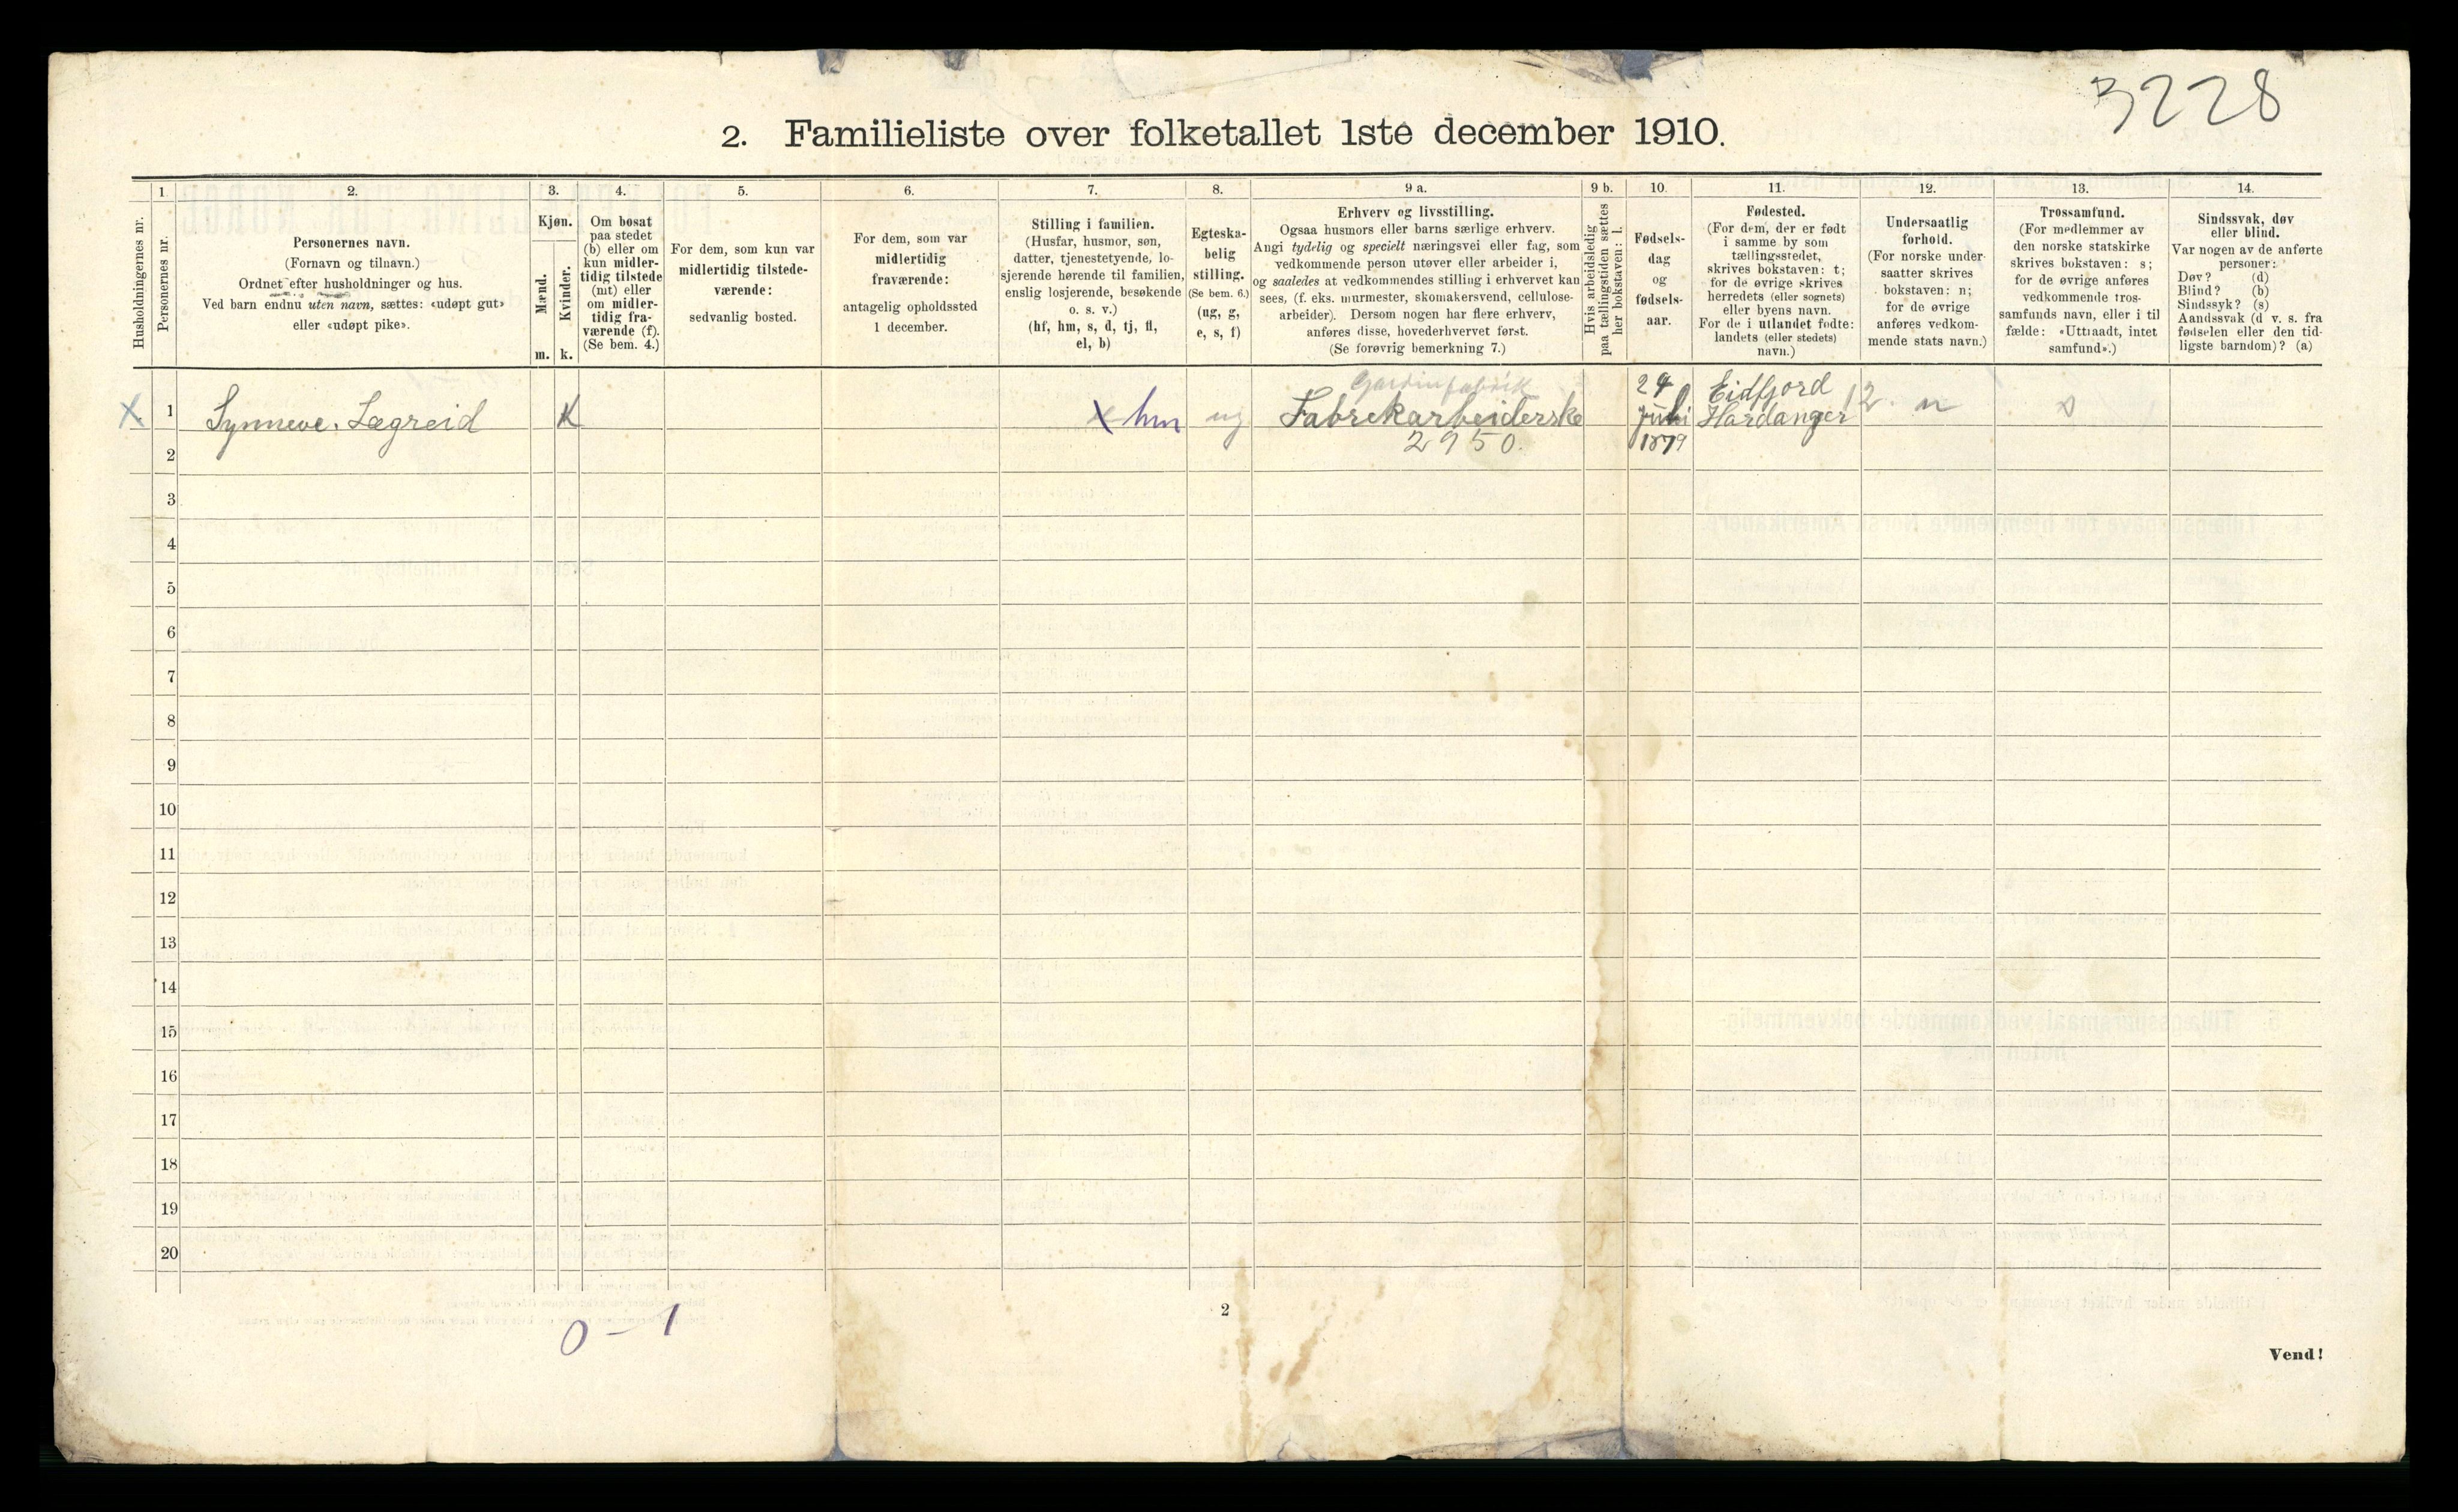 3228
2. Familieliste over folketallet 1ste december 1910.
Husholdningernes nr.
1.
Personernes nr.
2.
Personernes navn.
(Fornavn og tilnavn.)
Ordnet efter husholdninger og hus.
Ved barn endnu uten navn, sættes: «udøpt gut»
eller «udøpt pike».
3.
Kjøn.
Mænd.
m.
Kvinder.
k.
4.
Om bosat
paa stedet
(b) eller om
kun midler-
tidig tilstede
(mt) eller
om midler-
tidig fra-
værende (f).
(Se bem. 4.)
5.
For dem, som kun var
midlertidig tilstede-
værende:
sedvanlig bosted.
6.
For dem, som var
midlertidig
fraværende:
antagelig opholdssted
1 december.
7.
Stilling i familien.
(Husfar, husmor, søn,
datter, tjenestetyende, lo-
sjerende hørende til familien,
enslig losjerende, besøkende
o. s. v.)
(hf, hm, s, d, tj, fl,
el, b)
8.
Egteska-
belig
stilling.
(Se bem. 6.)
(ug, g,
e, s, f)
9 a.
Erhverv og livsstilling.
Ogsaa husmors eller barns særlige erhverv.
Angi tydelig og specielt næringsvei eller fag, som
vedkommende person utøver eller arbeider i,
og saaledes at vedkommendes stilling i erhvervet kan
sees, (f. eks. murmester, skomakersvend, cellulose-
arbeider). Dersom nogen har flere erhverv,
anføres disse, hovederhvervet først.
(Se forøvrig bemerkning 7.)
9 b.
Hvis arbeidsledig
paa tællingstiden sættes
her bokstaven: l.
10.
Fødsels-
dag
og
fødsels-
aar.
11.
Fødested.
(For dem, der er født
i samme by som
tællingsstedet,
skrives bokstaven: t;
for de øvrige skrives
herredets (eller sognets)
eller byens navn.
For de i utlandet fødte:
landets (eller stedets)
navn.)
12.
Undersaatlig
forhold.
(For norske under-
saatter skrives
bokstaven: n;
for de øvrige
anføres vedkom-
mende stats navn.)
13.
Trossamfund.
(For medlemmer av
den norske statskirke
skrives bokstaven: s;
for de øvrige anføres
vedkommende tros-
samfunds navn, eller i til
fælde: «Uttraadt, intet
samfund».)
14.
Sindssvak, døv
eller blind.
Var nogen av de anførte
personer:
Døv? (d)
Blind? (b)
Sindssyk? (s)
Aandssvak (d. v. s. fra
fødselen eller den tid-
ligste barndom)? (a)
Gardinfabrik
X 1 Synneve Lægreid K X hm ug Fabrekarbeiderske 24 Juli 1879 Eidfjord Hardanger 12 n s
2950.
2
3
4
5
6
7
8
9
10
11
12
13
14
15
16
17
18
19
20
0 – 1
2
Vend!